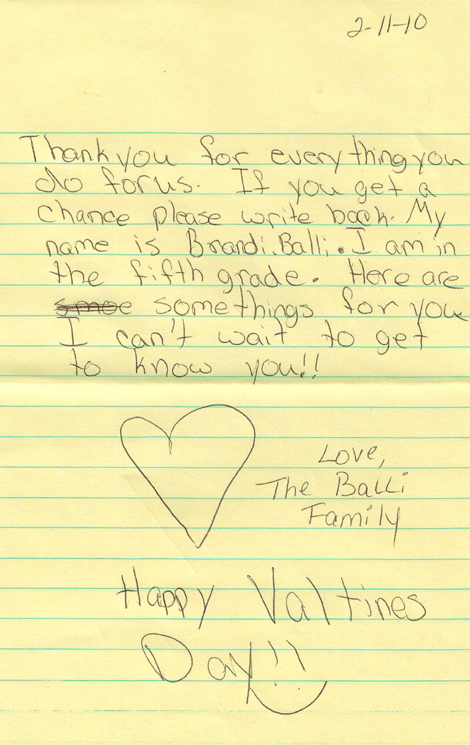 2-11-10
Thank you for everything you
do for us. If you get a
chance please write back. My
name is Brandi Balli. I am in
the fifth grade. Here are
smoe somethings for you
I can't wait to get
to know you!!
Love,
The Balli
Family
Happy Valtines
Day!!